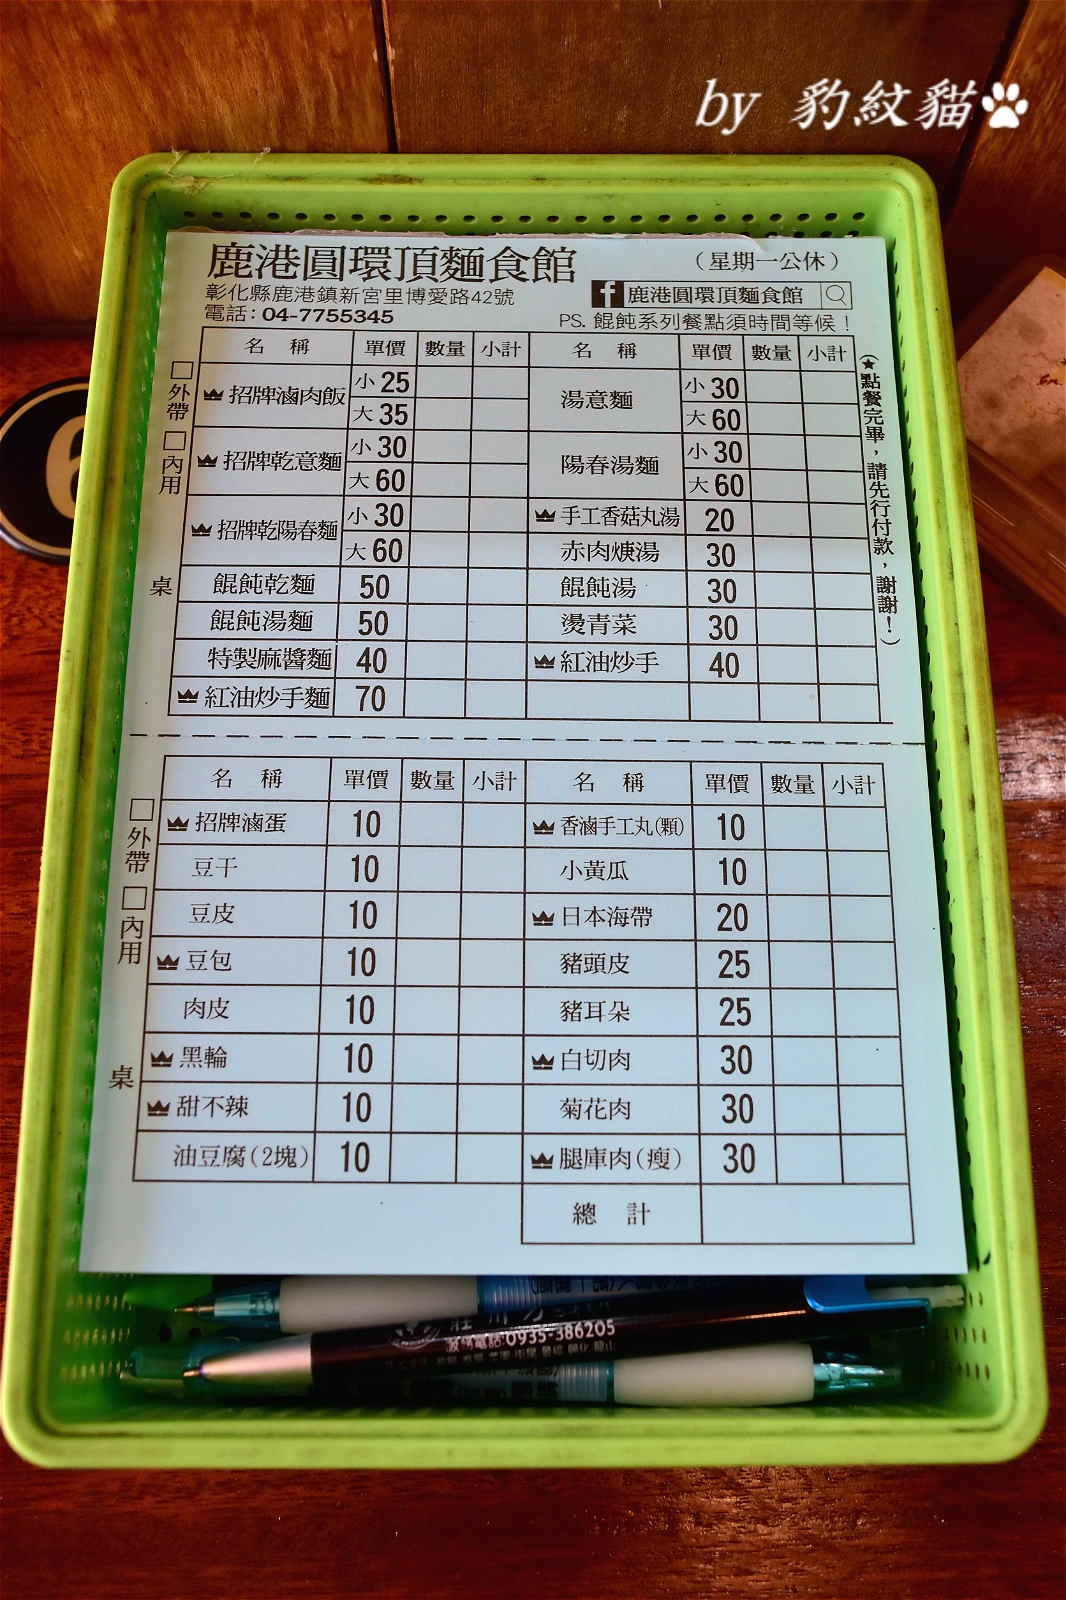 by 豹紋貓
鹿港圓環頂麵食館
(星期一公休)
彰化縣鹿港鎮新宮里博愛路42號
f 鹿港圓環頂麵食館
電話:04-7755345
PS. 餛飩系列餐點須時間等候!
名 稱 單價 數量 小計 名 稱 單價 數量 小計
招牌滷肉飯 小 25 湯意麵 小 30
大 35 大 60
招牌乾意麵 小 30 陽春湯麵 小 30
大 60 大 60
招牌乾陽春麵 小 30 手工香菇丸湯 20
大 60 赤肉焿湯 30
餛飩乾麵 50 餛飩湯 30
餛飩湯麵 50 燙青菜 30
特製麻醬麵 40 紅油炒手 40
紅油炒手麵 70
□外帶 □內用 桌
(★點餐完畢,請先行付款,謝謝!)
名 稱 單價 數量 小計 名 稱 單價 數量 小計
招牌滷蛋 10 香滷手工丸(顆) 10
豆干 10 小黃瓜 10
豆皮 10 日本海帶 20
豆包 10 豬頭皮 25
肉皮 10 豬耳朵 25
黑輪 10 白切肉 30
甜不辣 10 菊花肉 30
油豆腐(2塊) 10 腿庫肉(瘦) 30
總 計
□外帶 □內用 桌
0935-386205